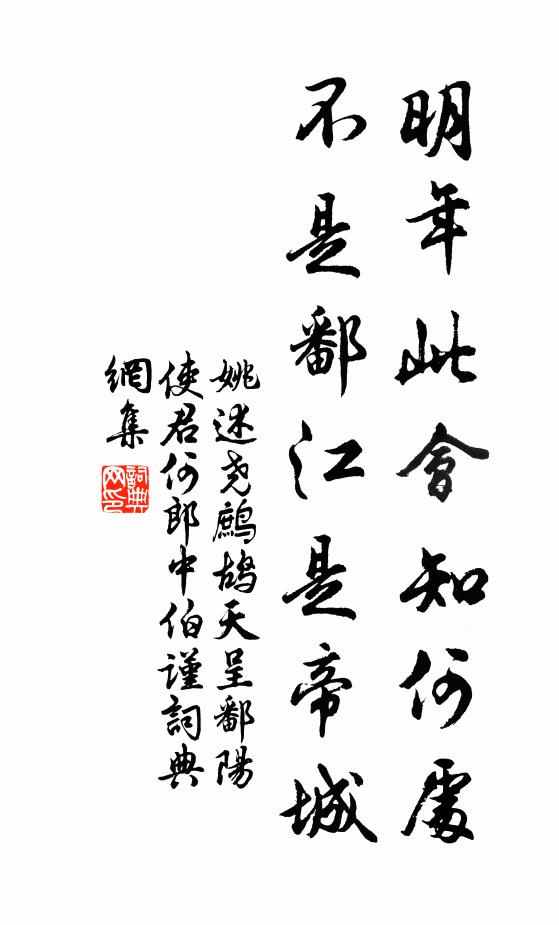 明年此會知何處
不是鄱江是帝城
姚述尧鷓鴣天呈鄱陽
使君何郎中伯謹詞典
網集
詞典網印